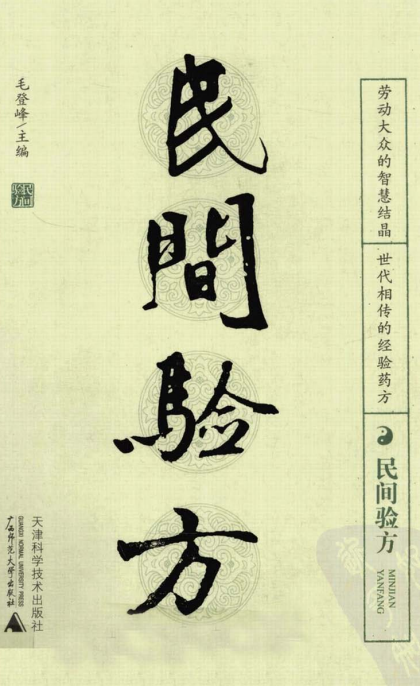 劳动大众的智慧结晶
世代相传的经验药方
民间验方
MINJIAN
YANFANG
民間验方
毛登峰/主编
民间验方
天津科学技术出版社
广西师范大学出版社
GUANGXI NORMAL UNIVERSITY PRESS